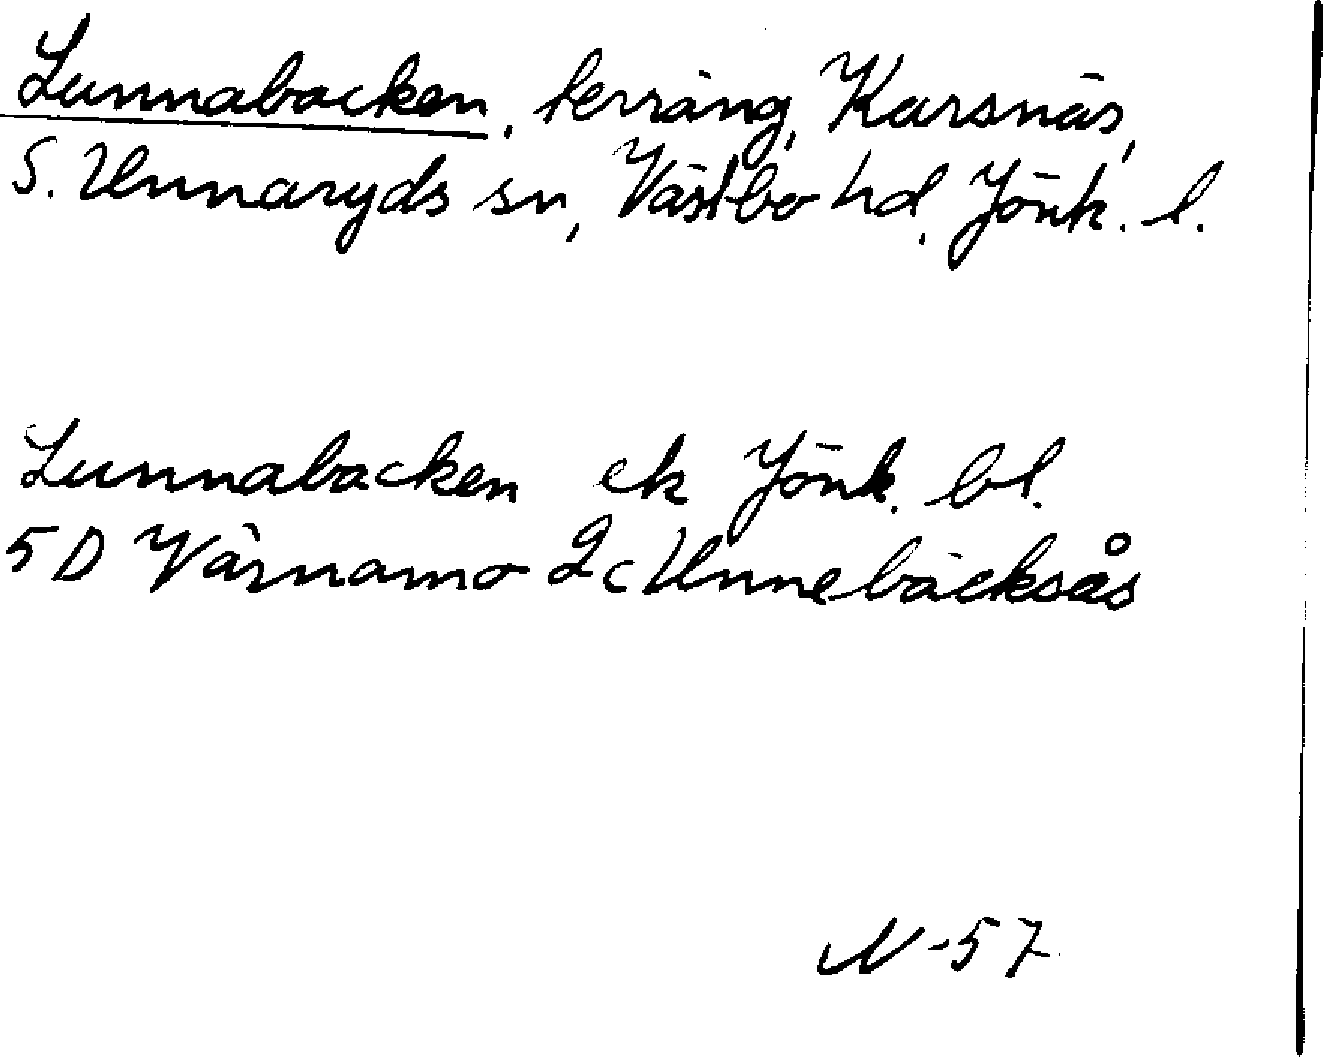 Lunnabacken, terräng, Karsnäs,
S. Unnaryds sn, Västbo hd, Jönk. l.
Lunnabacken ek Jönk. bl.
5 D Värnamo 2c Unnebäcksås
N-57